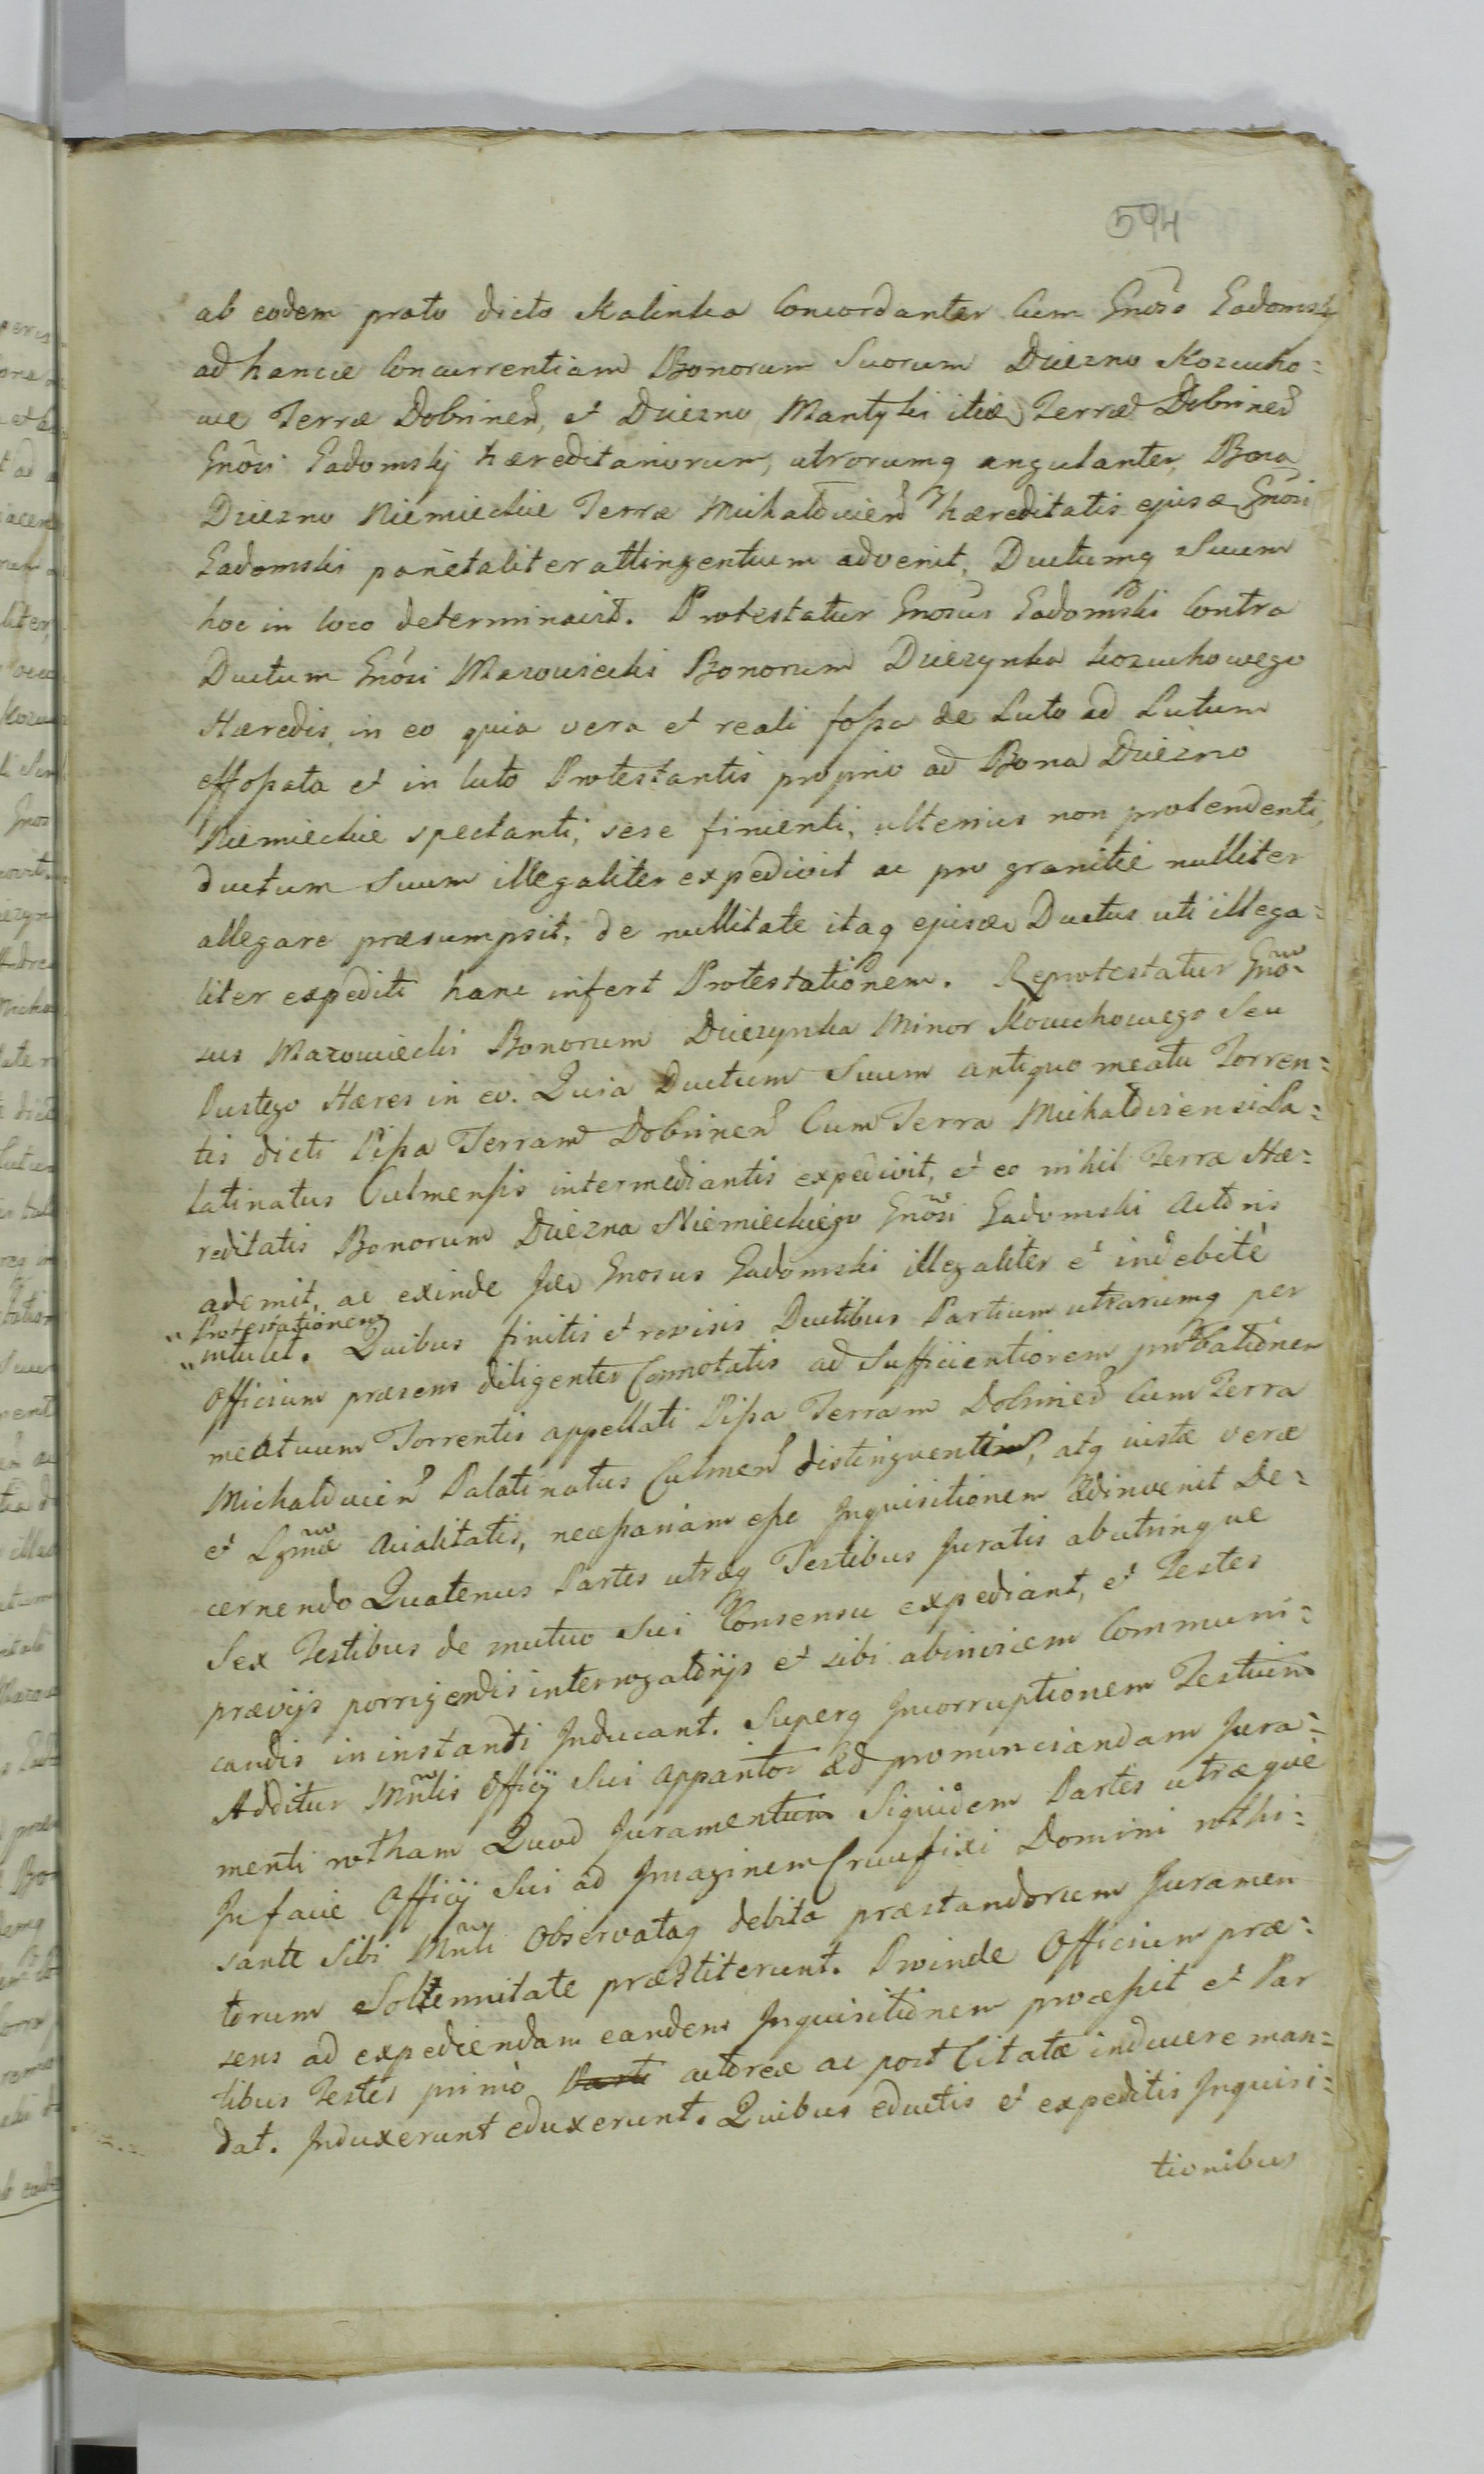 594
ab eodem prato dicto Kalinka Concordanter Cum Gnōso Gadomski
ad hancce Concurrentiam Bonorum Suorum Dziezno Kozucho=
we Terræ Dobrinen, et Dziezno Mantyki itidē Terræ Dobrinen
Gnōsi Gadomskj hæreditariorum, utrorumq angulanter, Bona
Dziezno Niemieckie Terræ Michałovien hæreditatis ejusdē Gnōsi
Gadomski parietaliter attingentium advenit, Ductumq Suum
hoc in loco determinavit. Protestatur Gnosus Gadomski Contra
Ductum Gnōsi Mazowiecki Bonorum Dziezynka kozuchowego
Hæredis, in eo quia vera et reali fossa de Luto ad Lutum
effossata et in luto Protestantis proprio ad Bona Dziezno
Niemieckie spectanti, sese finienti, ulterius non protendenti,
ductum Suum illegaliter expedivit ac pro granitie nulliter
allegare præsumpsit, de nullitate itaq ejusdē Ductus uti illega=
liter expediti hanc infert Protestationem. Reprotestatur Gnō=
sus Mazowiecki Bonorum Dziezynka Minor Kozuchowego Seu
Pustego Hæres in eo. Quia Ductum Suum antiquo meatu Torren=
tis dicti Pissa Terram Dobrinen Cum Terra Michałoviensi Pa=
latinatus Culmensis intermediantis expedivit, et eo nihil Terræ Hæ=
reditatis Bonorum Dziezna Niemieckiego Gnōsi Gadomski Actoris
ademit, ac exinde Idē Gnosus Gadomski illegaliter et indebitè
"Protestationem
"intulit. Quibus finitis et revisis Ductibus Partium utrarumq per
Officium præsens diligenter Connotatis ad Sufficientiorem probationem
meatuum Torrentis appellati Pissa Terram Dobrinen Cum Terra
Michałovien Palatinatus Culmen distinguentis, atq iustæ veræ
et Lgmæ Acialitatis, necessariam esse Inquisitionem adinvenit De=
cernendo Quatenus Partes utræq Testibus Juratis ab utrinque
Sex Testibus de mutuo Sui Consensu expediant, et Testes
prævijs porrigendis interrogatorijs et sibi abinvicem Communi=
candis in instanti Inducant. Superq Incorruptionem Testium
Additur Mnlis Officij Sui Apparitor ad pronunciandam Jura=
menti rotham Quod Juramentum Siquidem Partes utræque
In facie Officij Sui ad Imaginem Crucifixi Domini rothi=
sante Sibi Mnli Observataq debita præstandorum Juramen
torum Solennitate præstiterunt. Proinde Officium præ=
sens ad expediendam eandem Inquisitionem processit et Par
tibus Testes primò Parti actoreæ ac post Citatæ inducere man=
dat. Induxerunt eduxerunt. Quibus eductis et expeditis Inquisi=
tionibus